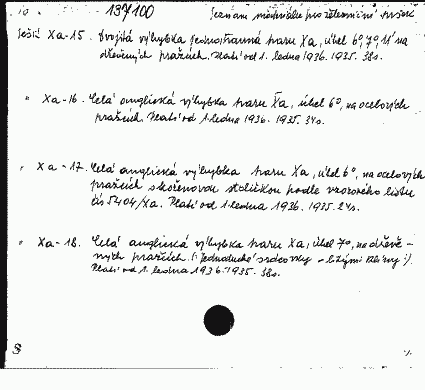 137100 Seznam materiálu pro železniční svršek
Sešit Xa-15. Dvojitá výhybka jednostranná tvaru Xa, úhel 6°, 7°, 11' na
dřevěných pražcích. Platí od 1. ledna 1936. 1935. 38s.
" Xa-16. Celá anglická výhybka tvaru Xa, úhel 6°, na ocelových
pražcích. Platí od 1. ledna 1936. 1935. 34s.
" Xa-17. Celá anglická výhybka tvaru Xa, úhel 6°, na ocelových
pražcích s kořenovou stoličkou podle vzorového listu
čís 5404/Xa. Platí od 1. ledna 1936. 1935. 24s.
" Xa-18. Celá anglická výhybka tvaru Xa, úhel 7°, na dřevě-
ných pražcích (: jednoduché srdcovky :).
Platí od 1. ledna 1936. 1935. 38s.
8